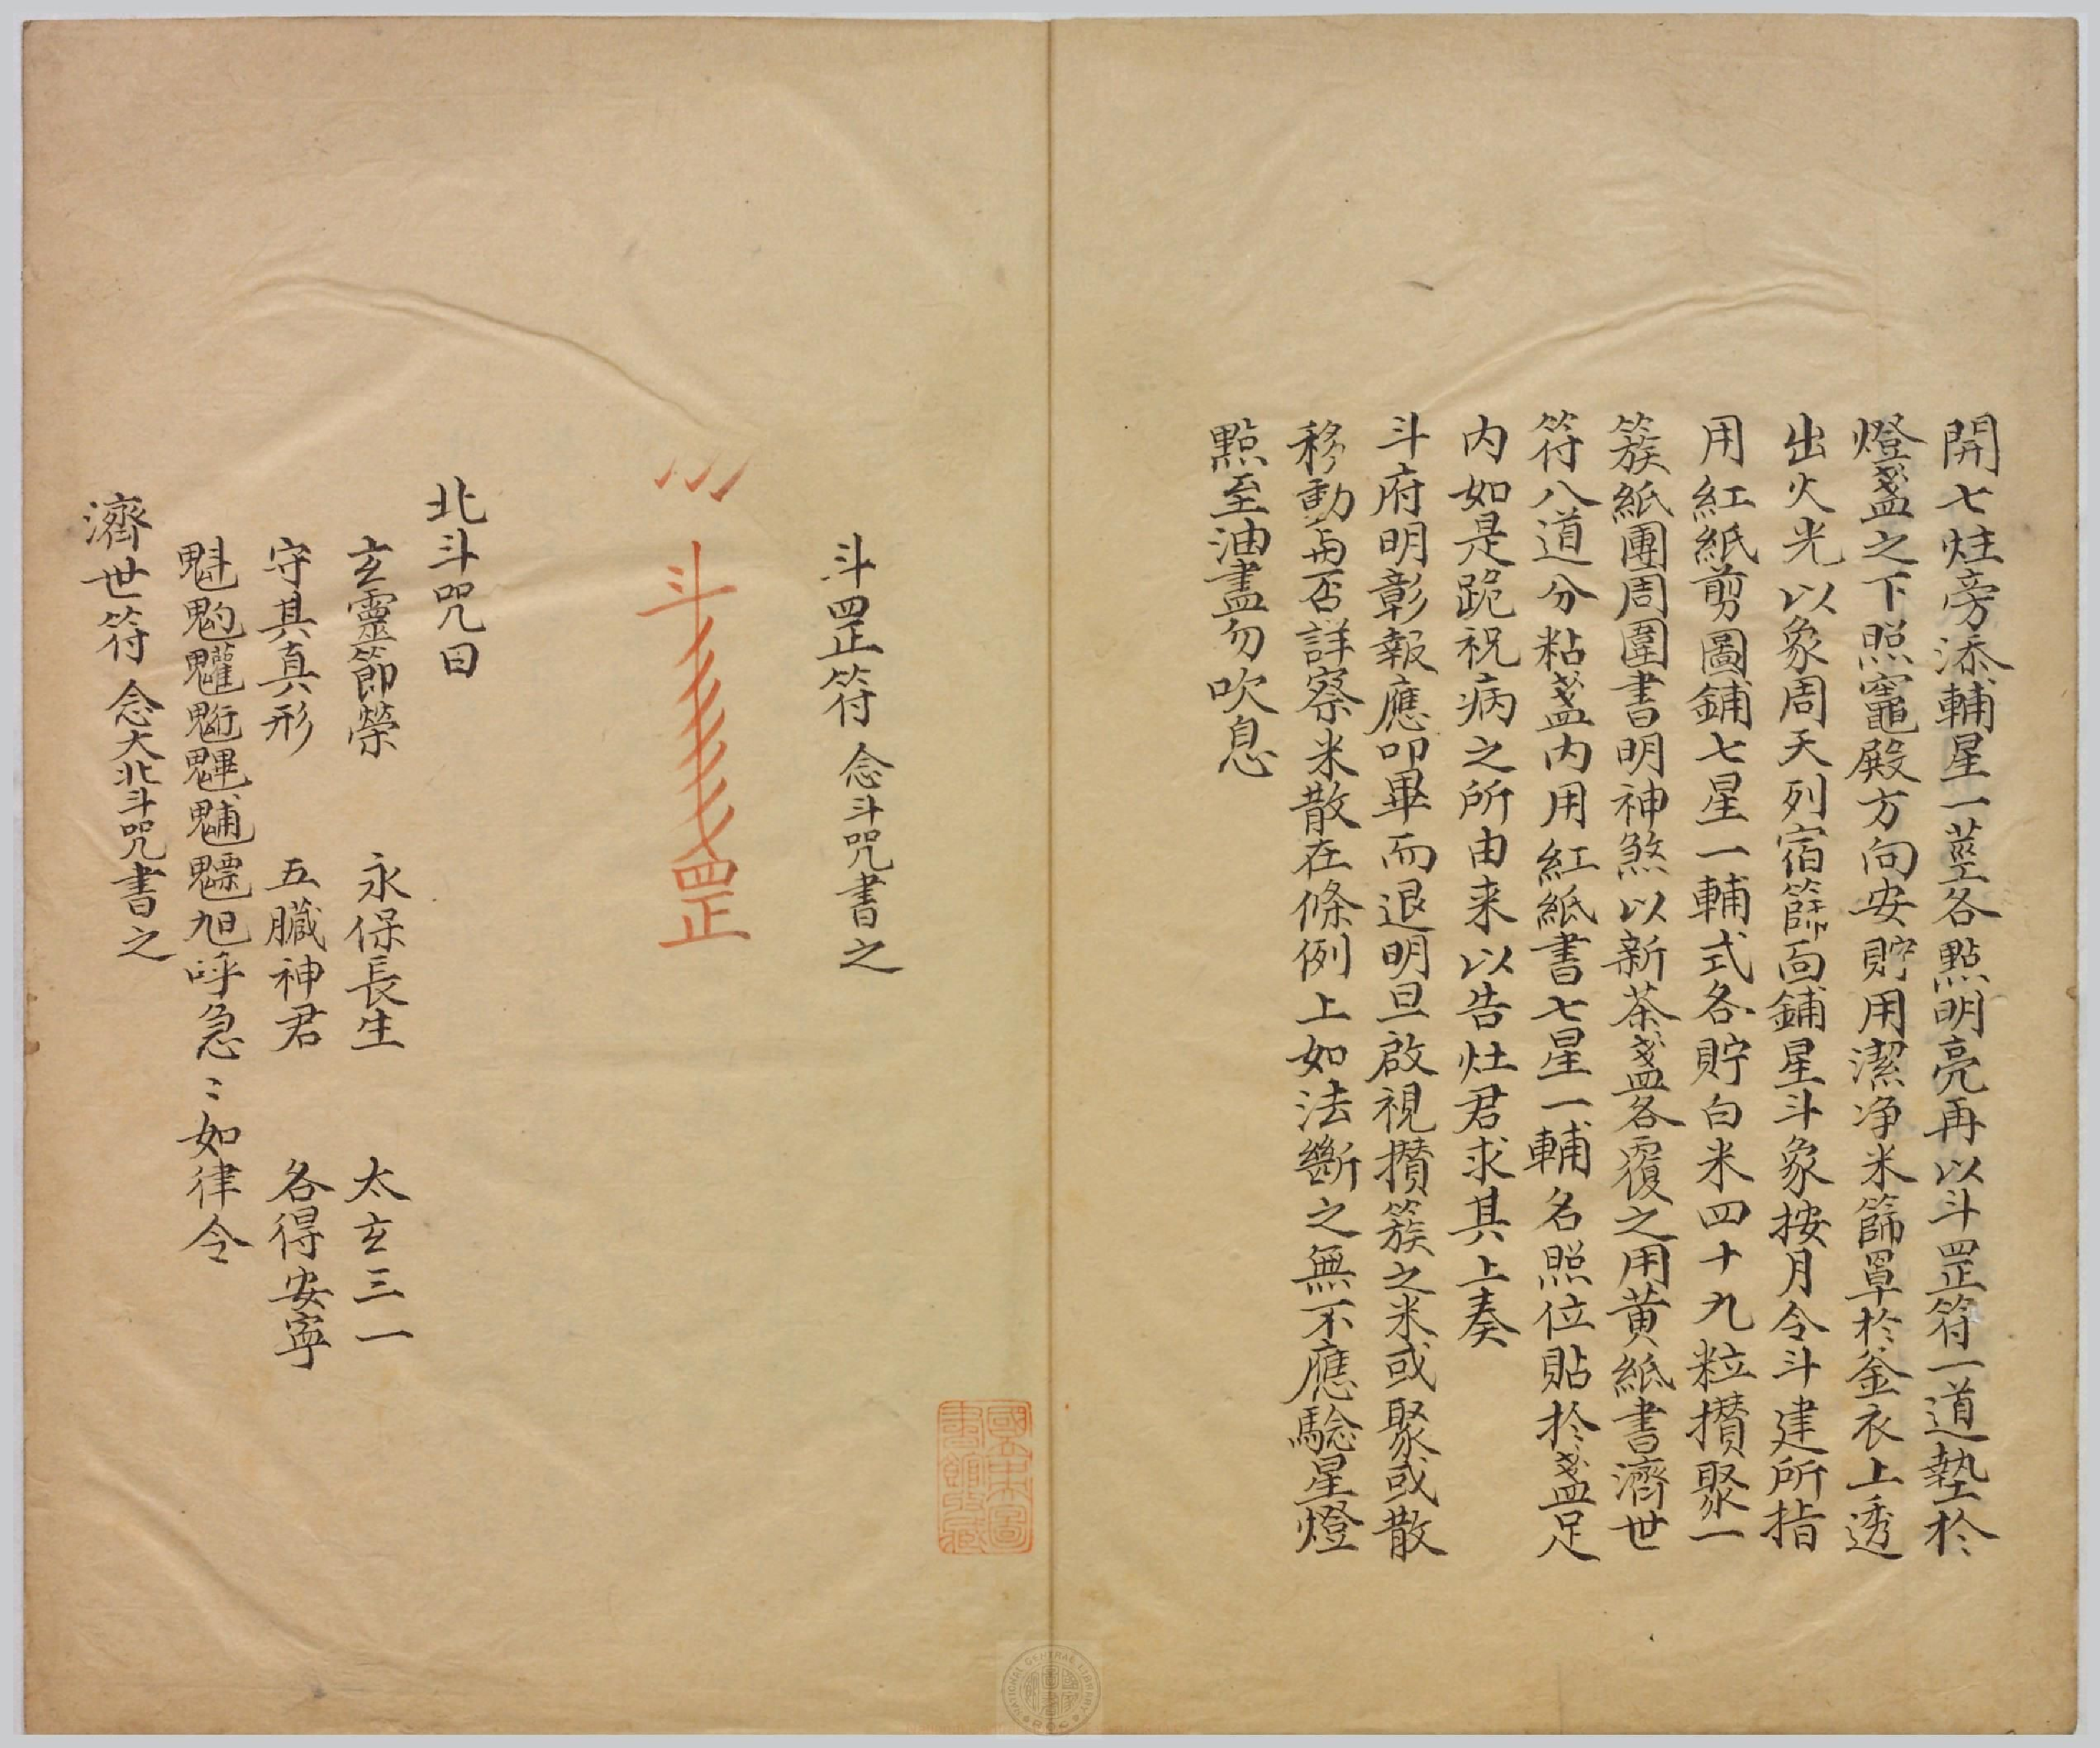 開七炷旁添輔星一莖各點明亮再以斗罡符一道墊於
燈盞之下照竈殿方向安貯用潔净米篩罩於釜衣上透
出火光以象周天列宿篩面鋪星斗象按月令斗建所指
用紅紙剪圖鋪七星一輔式各貯白米四十九粒攅聚一
簇紙團周圍書明神煞以新茶盞各覆之用黄紙書濟世
符八道分粘盞内用紅紙書七星一輔名照位貼於盞足
内如是跪祝病之所由来以告灶君求其上奏
斗府明彰報應叩畢而退明旦啟視攅簇之米或聚或散
移動與否詳察米散在條例上如法斷之無不應驗星燈
點至油盡勿吹息
斗罡符 念斗咒書之
斗罡
北斗咒曰
玄靈節榮 永保長生 太玄三一
守其真形 五臟神君 各得安寧
魁䰢魓䰣䰥呼急〻如律令
濟世符 念大北斗咒書之
國立中央圖書館收藏
NATIONAL CENTRAL LIBRARY